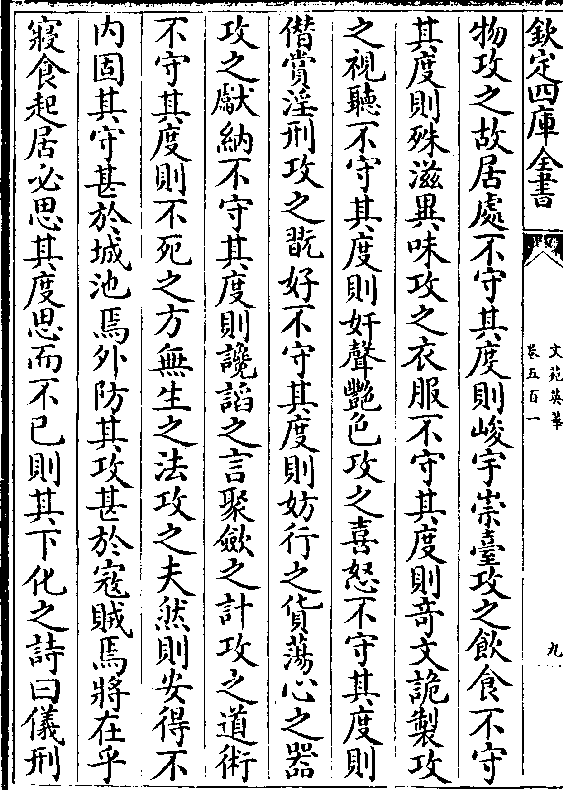 欽定四庫全書
文苑英華
卷五百一
九
物攻之故居處不守其度則峻宇崇臺攻之飲食不守
其度則殊滋異味攻之衣服不守其度則竒文詭製攻
之視聽不守其度則奸聲艷色攻之喜怒不守其度則
僣賞淫刑攻之翫好不守其度則妨行之貨蕩心之器
攻之獻納不守其度則讒謟之言聚斂之計攻之道術
不守其度則不死之方無生之法攻之夫然則安得不
内固其守甚於城池焉外防其攻甚於寇賊焉將在乎
寢食起居必思其度思而不已則其下化之詩曰儀刑